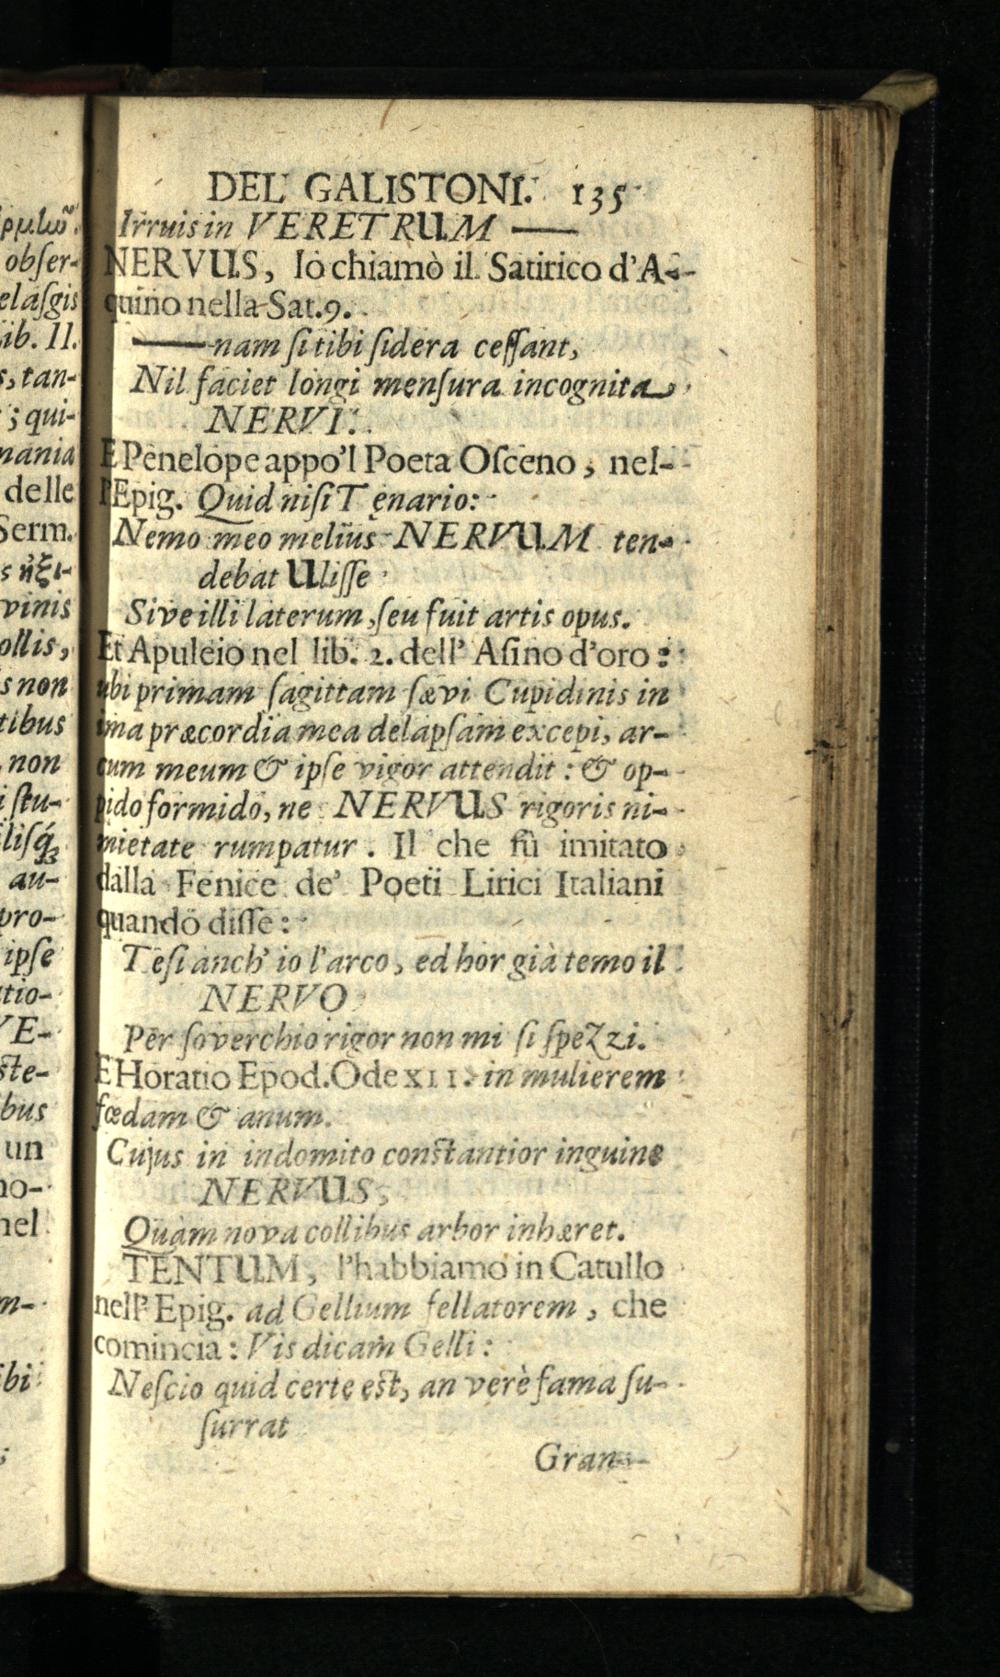 DEL GALISTONI. 135
Irruis in VERETRUM ——
NERVUS, lo chiamò il Satirico d'A-
quino nella Sat. 9.
—— nam si tibi sidera cessant,
Nil faciet longi mensura incognita
NERVI.
E Penelope appo'l Poeta Osceno, nel-
l'Epig. Quid nisi Tęnario:
Nemo meo meliùs NERVUM ten-
debat Ulisse
Sive illi laterum, seu fuit artis opus.
Et Apuleio nel lib. 2. dell' Asino d'oro:
ubi primam sagittam sævi Cupidinis in
ima præcordia mea delapsam excepi, ar-
cum meum & ipse vigor attendit: & op-
pido formido, ne NERVUS rigoris ni-
mietate rumpatur. Il che fù imitato
dalla Fenice de' Poeti Lirici Italiani
quando disse:
Tesi anch' io l'arco, ed hor già temo il
NERVO
Per soverchio rigor non mi si spezzi.
E Horatio Epod. Ode XII. in mulierem
fœdam & anum.
Cujus in indomito constantior inguine
NERVUS,
Quàm nova collibus arbor inhæret.
TENTUM, l'habbiamo in Catullo
nell' Epig. ad Gellium fellatorem, che
comincia: Vis dicam Gelli:
Nescio quid certe est, an verè fama su-
surrat
Gran-
obser-
elasgis
ib. II.
s, tan-
; qui-
mania
delle
Serm.
vinis
ollis,
s non
tibus
non
i stu-
au-
pro-
ipse
tio-
VE-
ste-
bus
un
no-
nel
m-
ibi